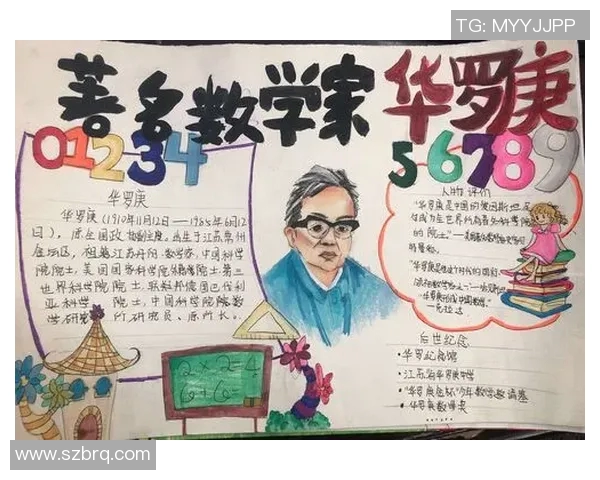 TG: MYYJJPP
著名数学家 华罗庚
01234
56789
华罗庚
华罗庚(1910年11月12日——1985年6月12
日),原全国政协副主席。出生于江苏常州
金坛区,祖籍江苏丹阳,数学家,中国科学
院院士,美国国家科学院外籍院士,第三
世界科学院院士,联邦德国巴伐利
亚科学院院士,中国科学院数
学研究所研究员、原所长。
人物评价
"华罗庚是中国的爱因斯坦,足
够成为全世界所有著名科学院
的院士。"
2×2=4
6+6=
后世纪念
·华罗庚纪念馆
·江苏省华罗庚中学
·"华罗庚金杯"少年数学邀请赛
·华罗庚数学奖
www.szbrq.com